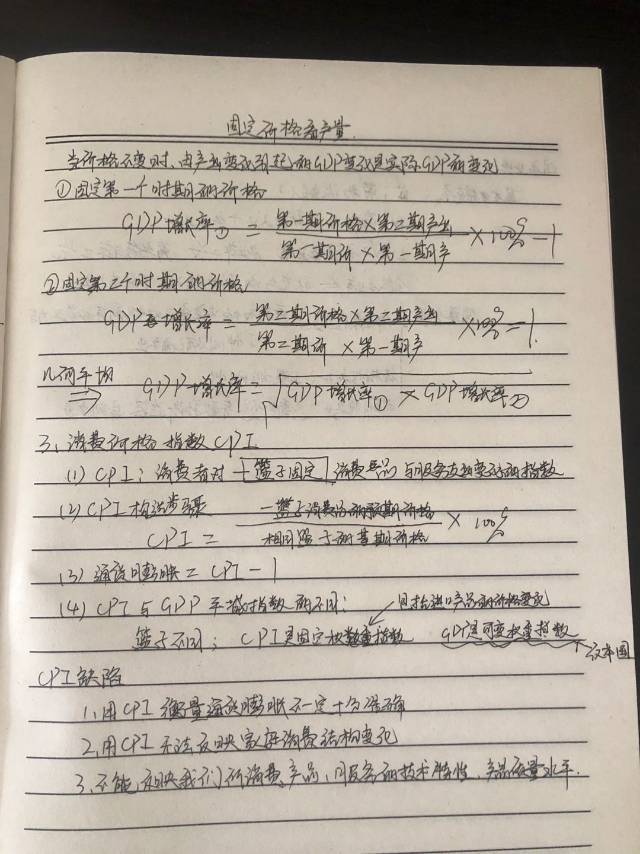 固定价格看产量
当价格不变时,由产出变化引起的GDP变化是实际GDP的变化
① 固定第一个时期的价格
GDP增长率① = 第一期价格×第二期产出 / 第一期价×第一期产 ×100% -1
② 固定第二个时期的价格
GDP增长率 = 第二期价格×第二期产出 / 第二期价×第一期产 ×100% -1.
几何平均 ⇒ GDP增长率 = √GDP增长率① × GDP增长率②
3. 消费价格指数CPI
(1) CPI: 消费者对一篮子固定消费产品与服务支出变动的指数
(2) CPI构造步骤
CPI = 一篮子消费品的现期价格 / 相同篮子的基期价格 × 100%
(3) 通货膨胀 = CPI - 1
(4) CPI与GDP平减指数的不同: 包括进口产品的价格变化
篮子不同; CPI是固定权数指数 GDP是可变权重指数
仅本国
CPI缺陷
1. 用CPI衡量通货膨胀不一定十分准确
2. 用CPI无法反映家庭消费结构变化
3. 不能反映我们所消费产品,同服务的技术特性,产品质量水平.